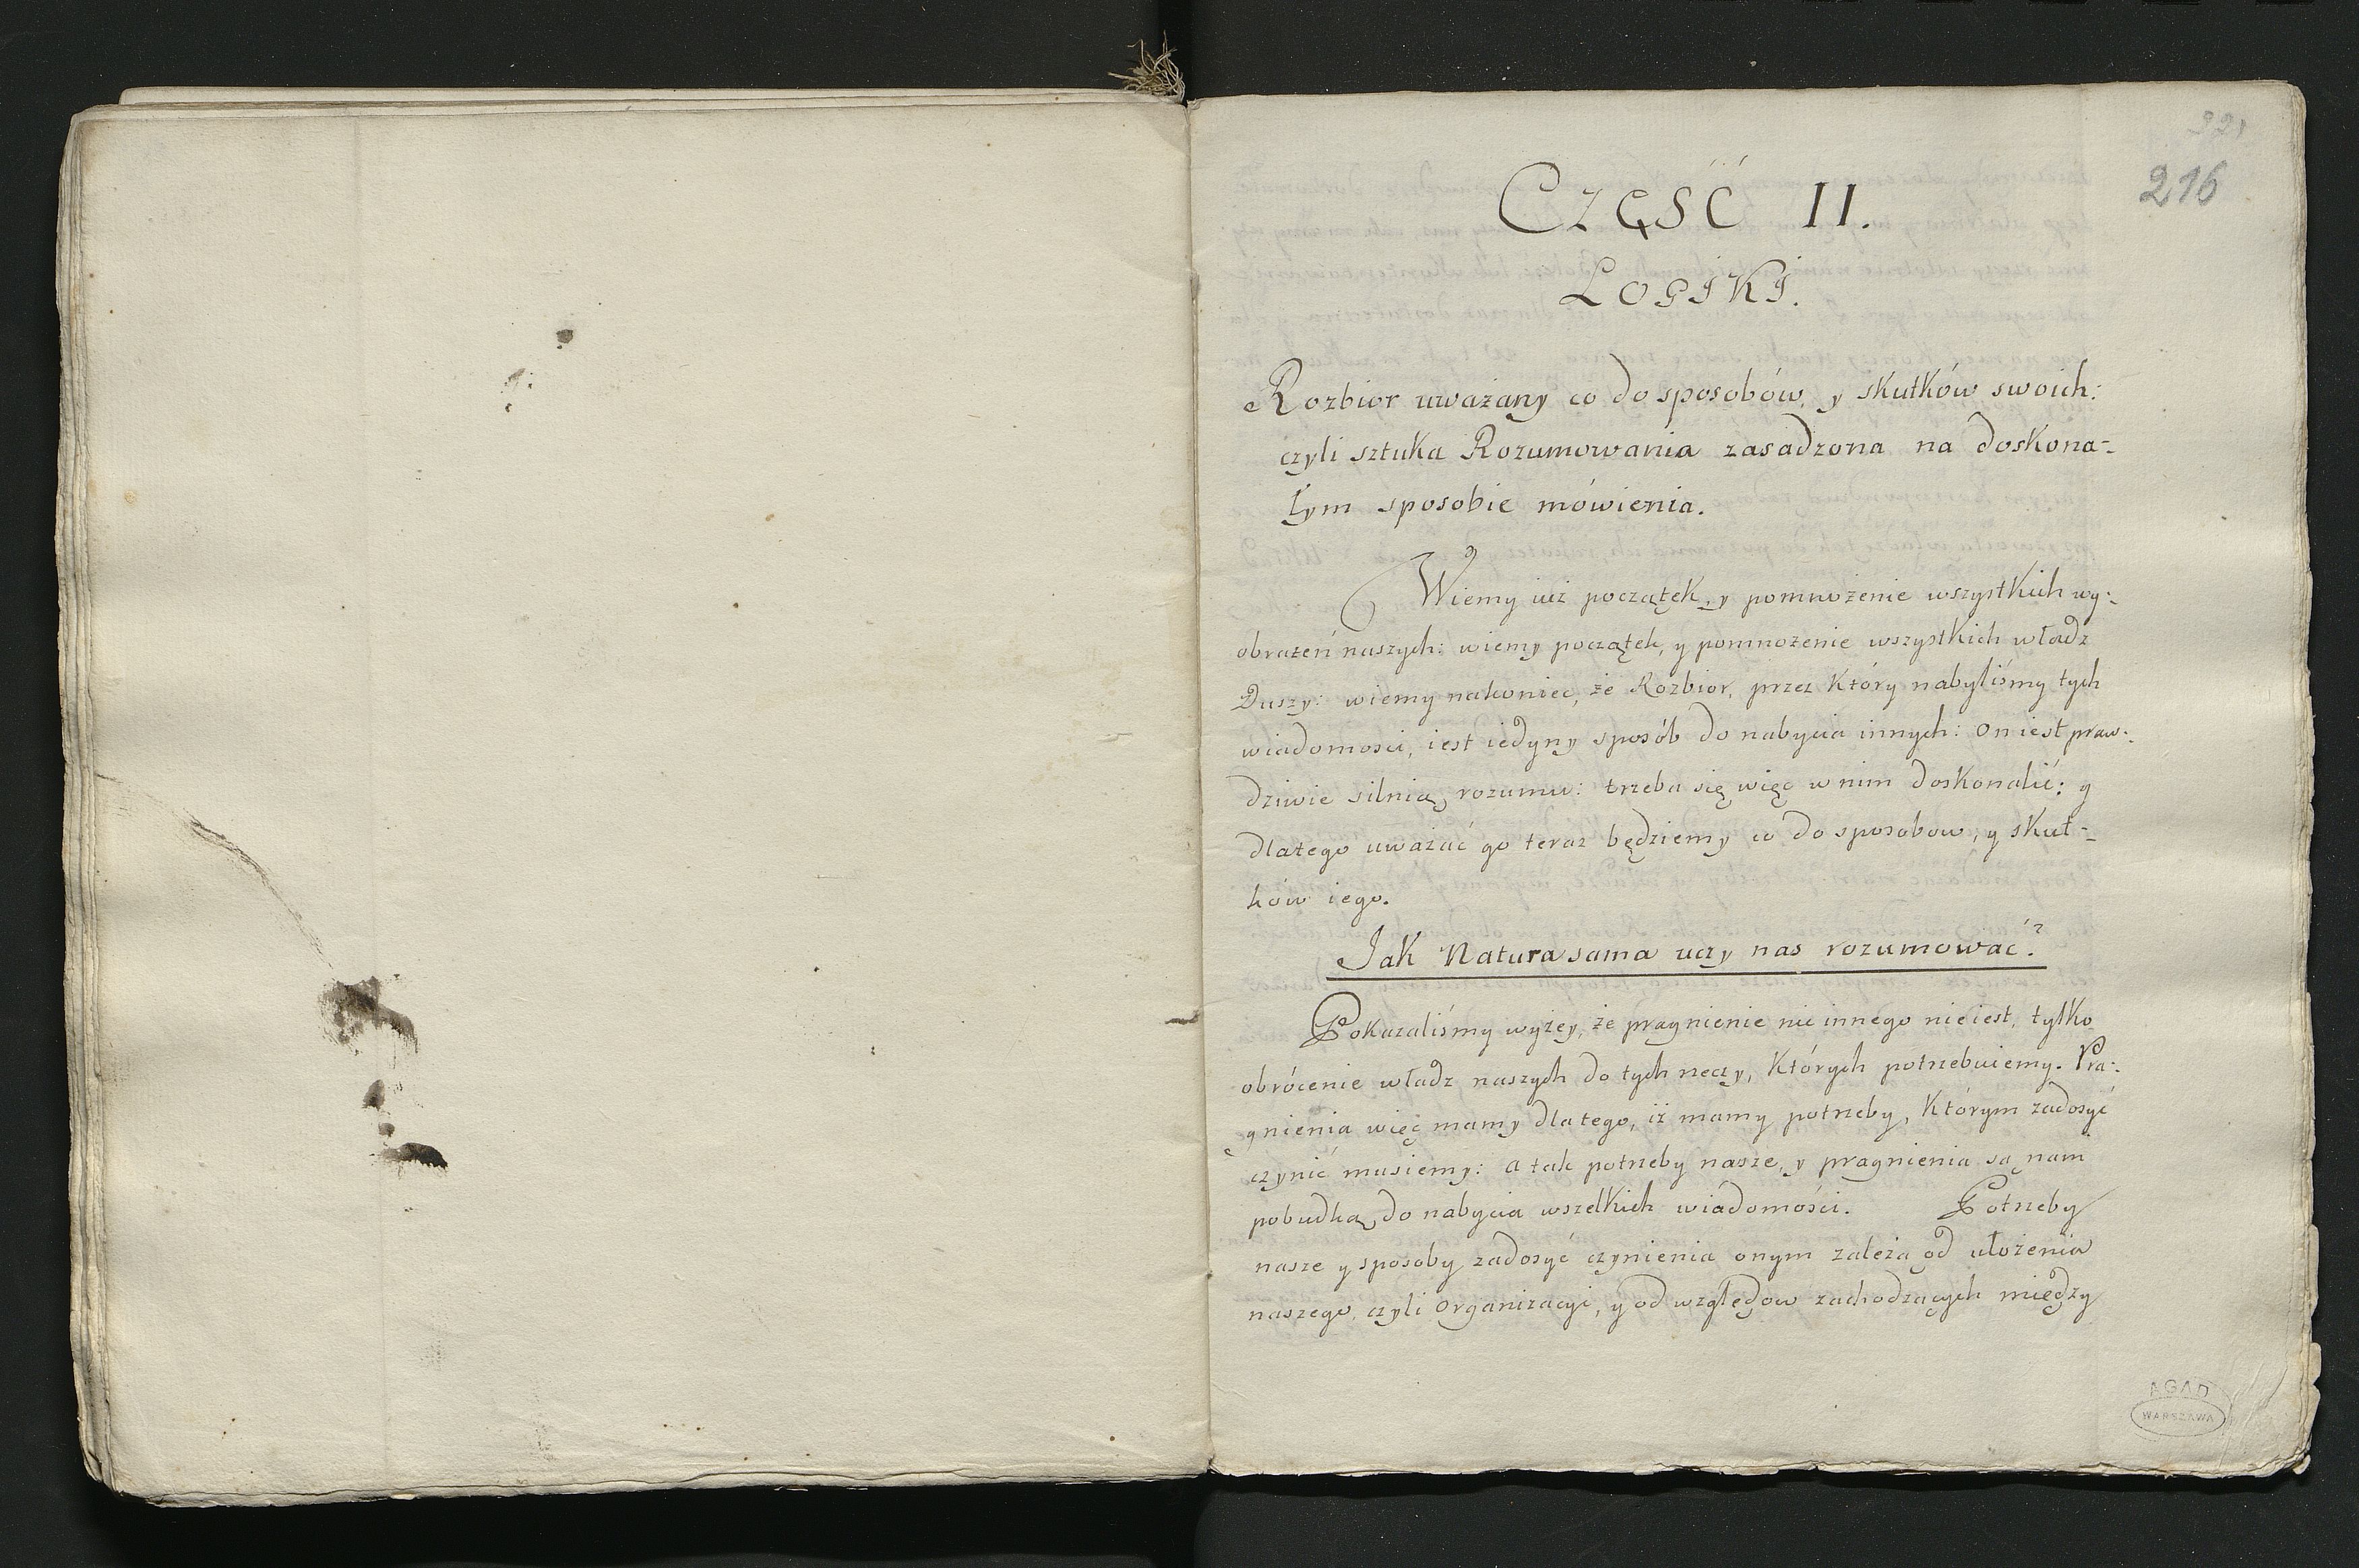 221
216
CZĘŚĆ II.
LOGIKI.
Rozbior uważany co do sposobów, y skutków swoich:
czyli sztuka Rozumowania zasadzona na doskona-
łym sposobie mówienia.
Wiemy iuż początek, y pomnożenie wszystkich wy-
obrażeń naszych: wiemy początek, y pomnożenie wszystkich władz
Duszy: wiemy nakoniec, że Rozbior, przez który nabyliśmy tych
wiadomosci, iest iedyny sposób do nabycia innych: on iest praw-
dziwie silnią rozumu: trzeba się więc w nim doskonalić: y
dlatego uważać go teraz będziemy co do sposobow, y skut-
ków iego.
Jak Natura sama uczy nas rozumować?
Pokazaliśmy wyżey, że pragnienie nic innego nie iest, tylko
obrócenie władz naszych do tych rzeczy, których potrzebuiemy. Pra-
gnienia więc mamy dlatego, iż mamy potrzeby, którym zadosyć
czynić musiemy: a tak potrzeby nasze, y pragnienia są nam
pobudką do nabycia wszelkich wiadomości. Potrzeby
nasze y sposoby zadosyć czynienia onym zależą od ułożenia
naszego, czyli Organizacyi, y od względow zachodzących między
AGAD
WARSZAWA